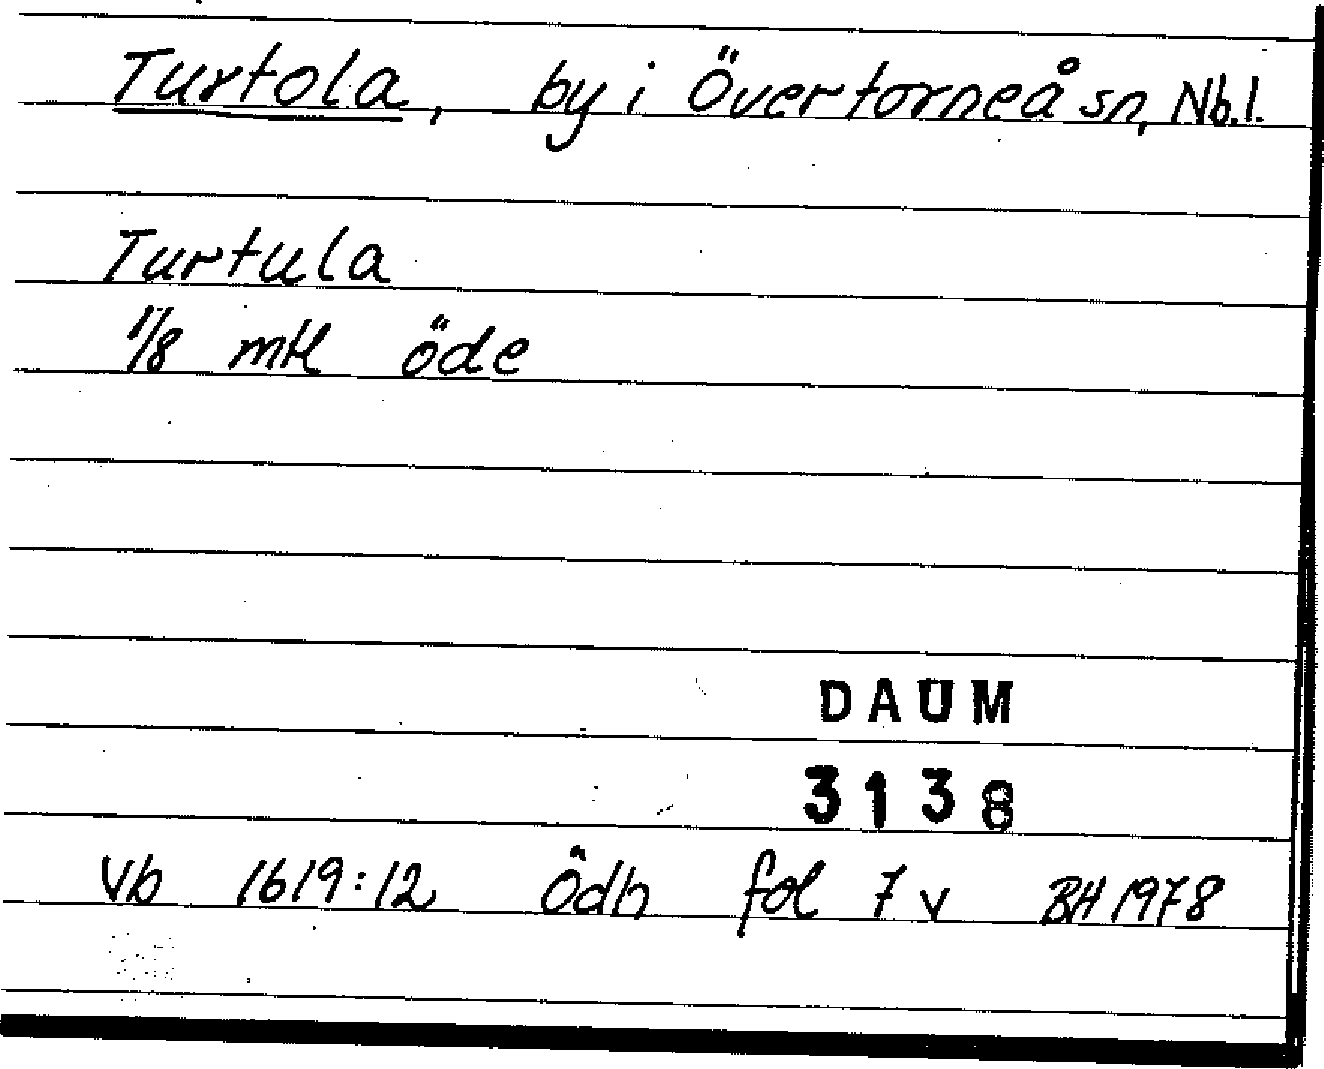 Turtola, by i Övertorneå sn, Nb.l.
Turtula
1/8 mtl öde
DAUM
3138
Vb 1619:12 Ödh fol 7 v BH 1978